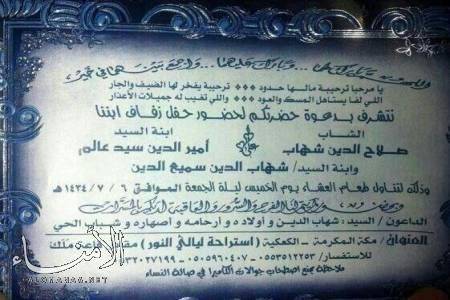 اللهم بارك لهما ... وبارك عليهما ... واجمع بينهما في خير
يا مرحبا ترحيبة مالها حدود *** ترحيبة يفخر لها الضيف والجار
اللي لفا يستاهل المسك والعود *** واللي تغيب له جميلات الأعذار
نتشرف بدعوة حضرتكم لحضور حفل زفاف ابننا
الشاب
ابنة السيد
صلاح الدين شهاب
على
أمير الدين سيد عالم
وابنة السيد/ شهاب الدين سميع الدين
وذلك لتناول طعام العشاء يوم الخميس ليلة الجمعة الموافق ٦ / ٧ / ١٤٣٤هـ
الداعون / السيد: شهاب الدين و أولاده و أرحامه و أصهاره و شباب الحي
العنوان / مكة المكرمة - الكعكية (استراحة ليالي النور)
للاستفسار/
ملاحظة يمنع اصطحاب جوالات الكاميرا في صالة النساء
الأمناء
ALOMANAA.NET